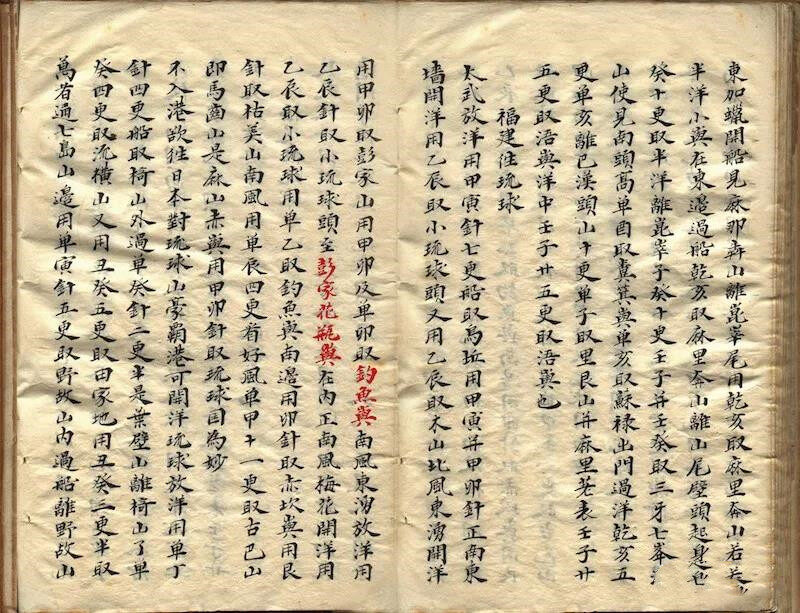 東加蠟開船見麻那犇山離崑峯尾用乾亥取麻里夲山若是
半洋小與在東邉過船乾亥取麻里夲山離山尾壁頭起是
癸十更取半洋離崑峯子癸十更壬子幷壬癸取三牙七峯
山使見南頭高单酉取糞箕與单亥取蘇禄出門過洋乾亥五
更单亥離巳漢頭山十更单子取里艮山幷麻里荖表壬子廾
五更取浯與洋中壬子廾五更取浯與也
福建徃琉球
太武放洋用甲寅針七更船取烏坵用甲寅幷甲卯針正南東
墻開洋用乙辰取小琉球頭又用乙辰取木山北風東湧開洋
用甲卯取彭家山用甲卯及单卯取釣魚與南風東湧放洋用
乙辰針取小琉球頭至彭家花瓶與在内正南風梅花開洋用
乙辰取小琉球用单乙取釣魚與南邉用卯針取赤坎與用艮
針取枯美山南風用单辰四更看好風单甲十一更取古巴山
即馬齒山是麻山赤與用甲卯針取琉球囯為妙
不入港欲徃日本對琉球山豪覇港可開洋琉球放洋用单丁
針四更船取椅山外過单癸針二更半是葉壁山離椅山了单
癸四更取流橫山又用丑癸五更取田家地用丑癸三更半取
萬若通七島山邉用单寅針五更取野故山内過船離野故山